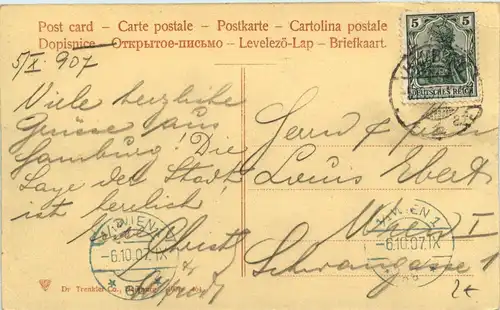 Post card – Carte postale – Postkarte – Cartolina postale
Dopisnice – Открытое-письмо – Levelező-Lap – Briefkaart.
5
5
DEUTSCHES REICH
5/X. 907
Viele herzliche
Grüsse aus
Hamburg! Die
Lage der Stadt
ist herrlich
Herrn &
Louis
Wien I
WIEN 1
-6.10.07.IX
WIEN 1
-6.10.07.IX
Dr Trenkler Co.,